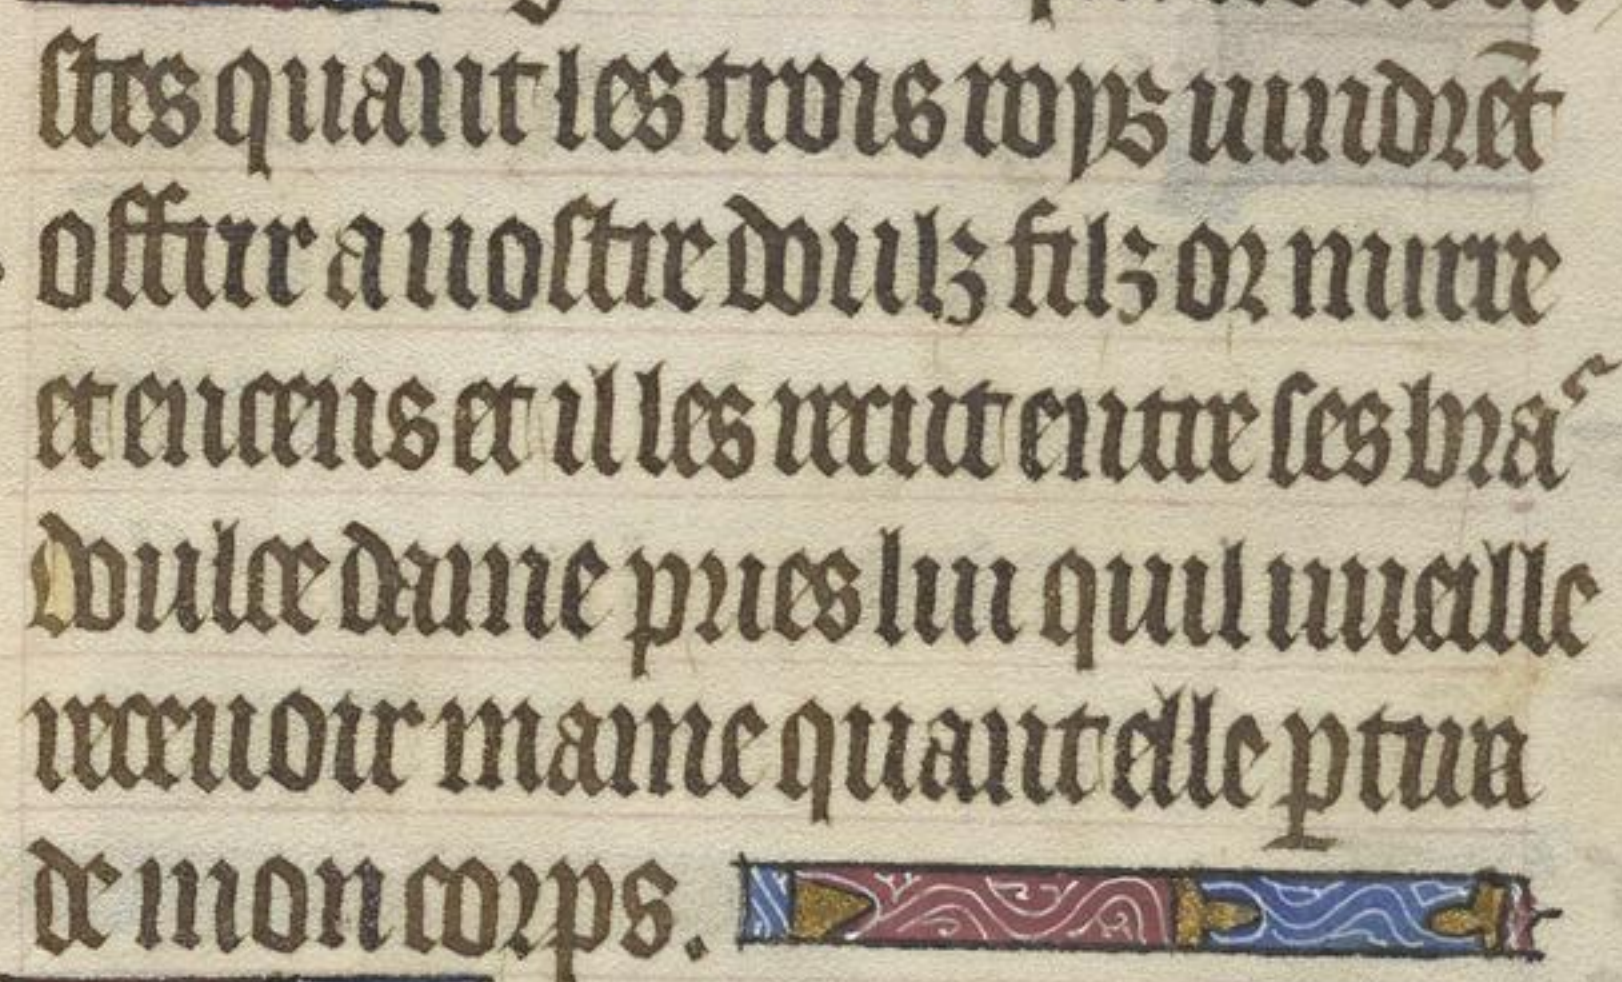 stes quant les trois roys uindrẽt
offrir a uostre doulz filz or mirre
et encens et il les recut entre ses bras
doulce dame pries lui quil uueille
receuoir mame quant elle ꝑtira
de mon corps.